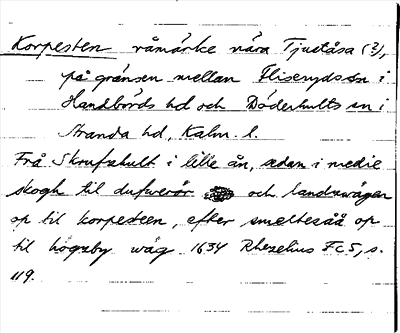 Korpesten råmärke nära Tjuståsa (?),
på gränsen mellan Fliseryds sn i
Handbörds hd och Döderhults sn i
Stranda hd, Kalm. l.
Frå Skrufshult i lille ån, sedan i medie
skogh til dufwerör och landzwägen
op til korpesteen, efter smeltesåå op
til högzby wäg 1634 Rhezelius Fc5, s.
119.